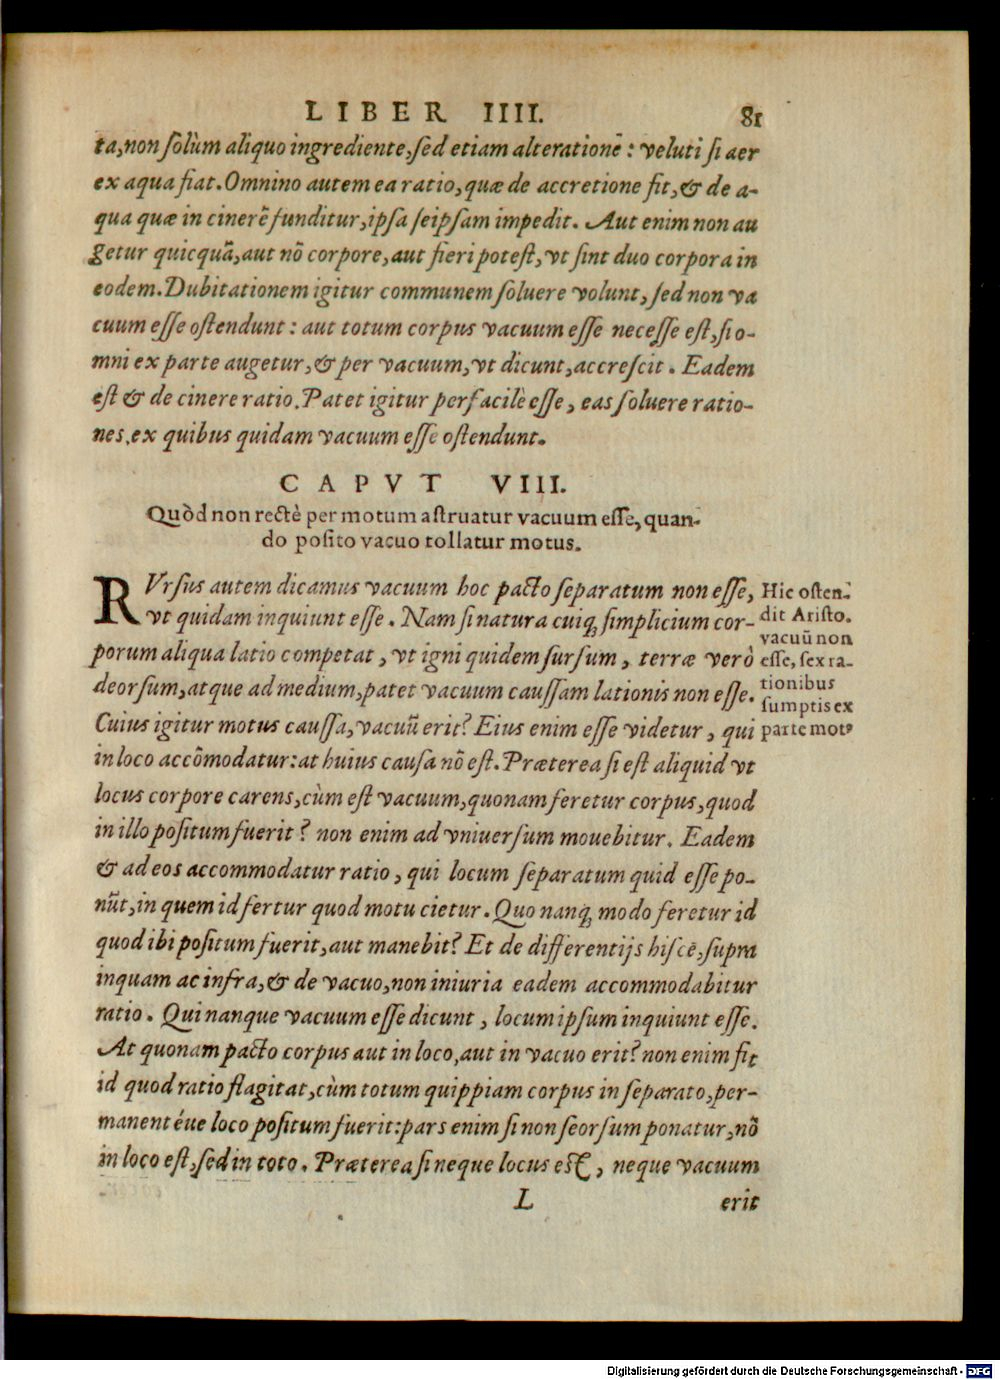 LIBER IIII. 81
ta, non solùm aliquo ingrediente, sed etiam alterationē: veluti si aer
ex aqua fiat. Omnino autem ea ratio, quæ de accretione fit, & de a-
qua quæ in cinerē funditur, ipsa seipsam impedit. Aut enim non au
getur quicquā, aut nō corpore, aut fieri potest, vt sint duo corpora in
eodem. Dubitationem igitur communem soluere volunt, sed non va
cuum esse ostendunt: aut totum corpus vacuum esse necesse est, si o-
mni ex parte augetur, & per vacuum, vt dicunt, accrescit. Eadem
est & de cinere ratio. Patet igitur perfacilè esse, eas soluere ratio-
nes, ex quibus quidam vacuum esse ostendunt.
CAPVT VIII.
Quòd non rectè per motum astruatur vacuum esse, quan-
do posito vacuo tollatur motus.
RVrsus autem dicamus vacuum hoc pacto separatum non esse,
vt quidam inquiunt esse. Nam si natura cuiq; simplicium cor-
porum aliqua latio competat, vt igni quidem sursum, terræ verò
deorsum, atque ad medium, patet vacuum caussam lationis non esse.
Cuius igitur motus caussa, vacuū erit? Eius enim esse videtur, qui
in loco accōmodatur: at huius causa nō est. Præterea si est aliquid vt
locus corpore carens, cùm est vacuum, quonam feretur corpus, quod
in illo positum fuerit? non enim ad vniuersum mouebitur. Eadem
& ad eos accommodatur ratio, qui locum separatum quid esse po-
nūt, in quem id fertur quod motu cietur. Quo nanq; modo feretur id
quod ibi positum fuerit, aut manebit? Et de differentijs hiscē, supra
inquam ac infra, & de vacuo, non iniuria eadem accommodabitur
ratio. Qui nanque vacuum esse dicunt, locum ipsum inquiunt esse.
At quonam pacto corpus aut in loco, aut in vacuo erit? non enim fit
id quod ratio flagitat, cùm totum quippiam corpus in separato, per-
manentéue loco positum fuerit: pars enim si non seorsum ponatur, nō
in loco est, sed in toto. Præterea si neque locus est, neque vacuum
L erit
Hic osten-
dit Aristo.
vacuū non
esse, sex ra-
tionibus
sumptis ex
parte motꝰ
Digitalisierung gefördert durch die Deutsche Forschungsgemeinschaft - DFG